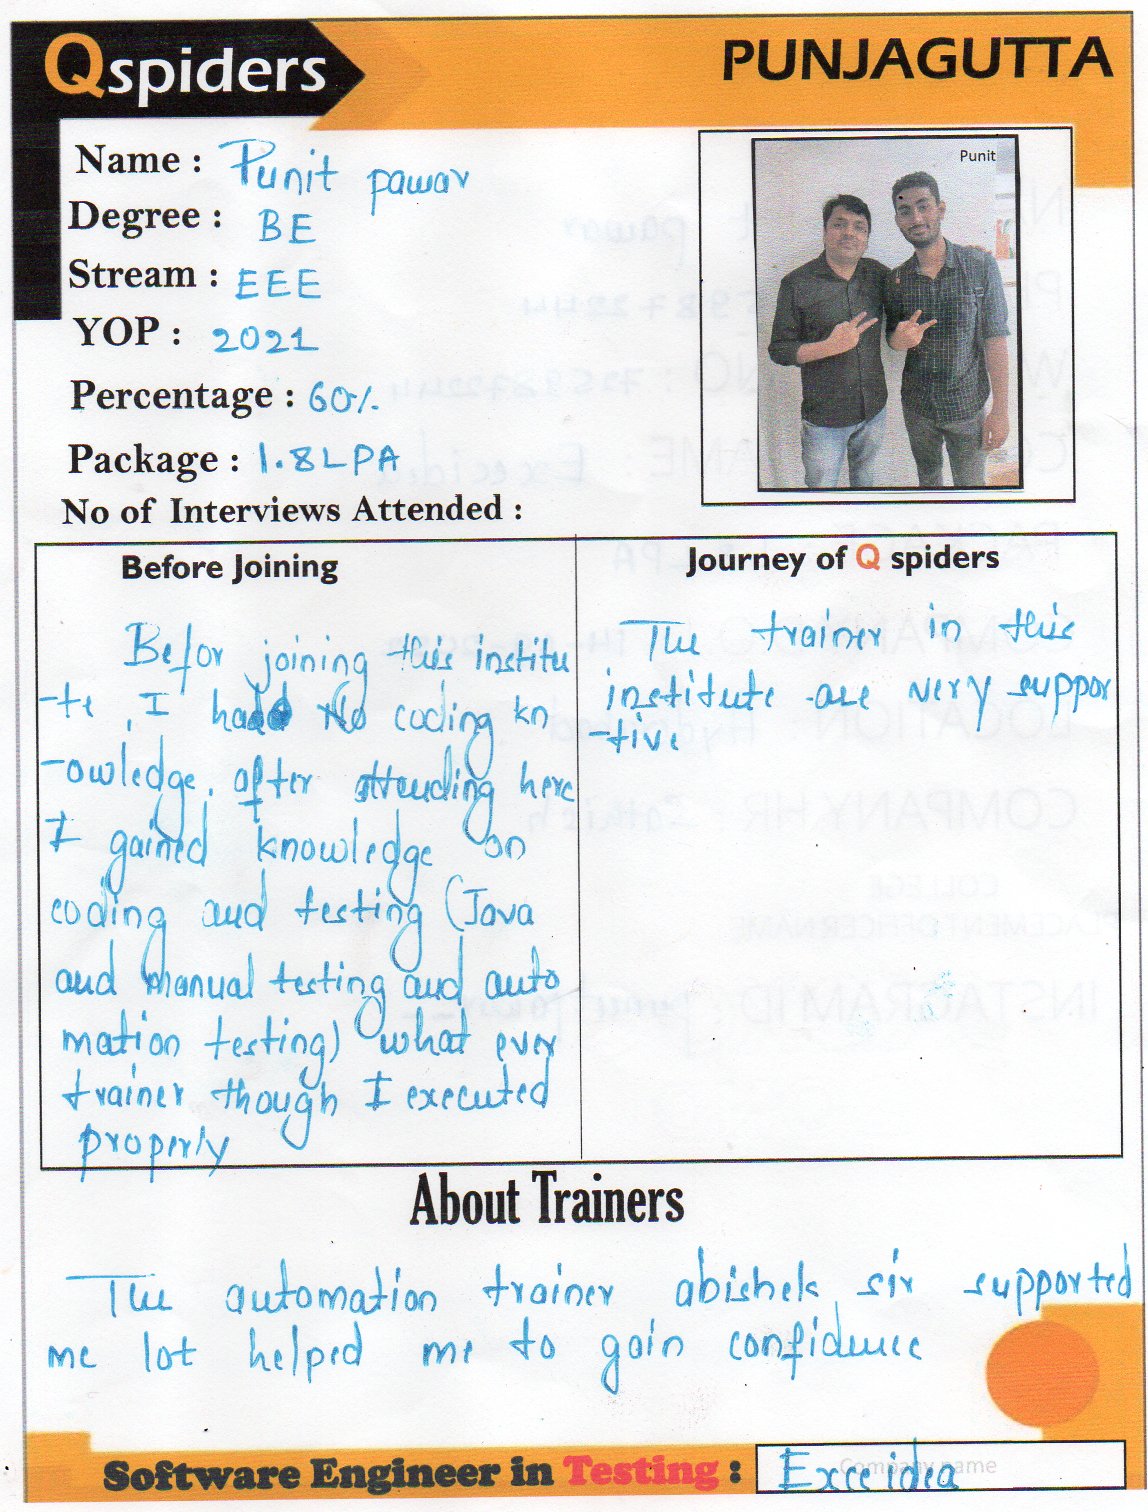 Qspiders
PUNJAGUTTA
Name : Punit pawar
Punit
Degree : BE
Stream : EEE
YOP : 2021
Percentage : 60%
Package : 1.8LPA
No of Interviews Attended :
Before Joining
Befor joining this institu
-te, I had No coding kn
-owledge. after attending here
I gained knowledge on
coding and testing (Java
and manual testing and auto
mation testing) what ever
trainer though I executed
properly
Journey of Q spiders
The trainer in this
institute are very suppor
-tive
About Trainers
The automation trainer abishek sir supported
me lot helped me to gain confidence
Software Engineer in Testing : Exceidea
Company name